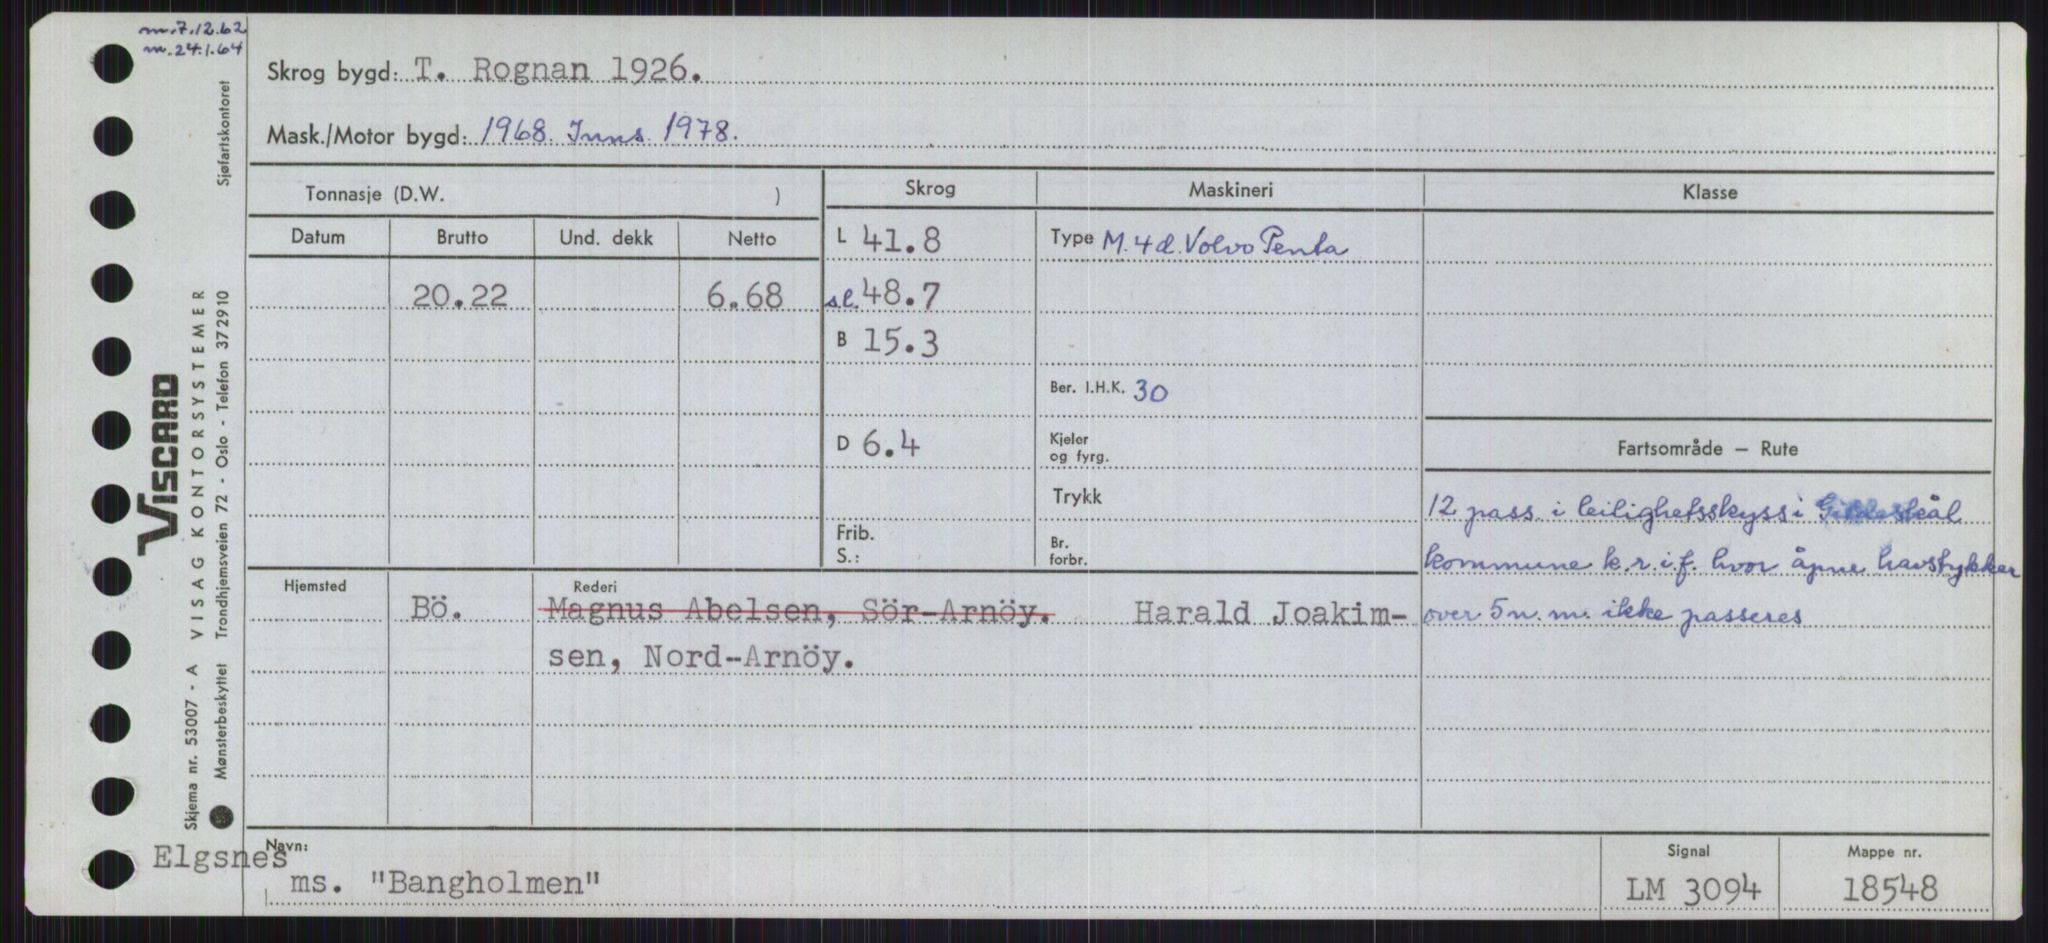 m. 7.12.62
m. 24.1.64
Skrog bygd: T. Rognan 1926.
Mask./Motor bygd: 1968. Inns. 1978.
Sjøfartskontoret
Tonnasje (D.W. )
Skrog
Maskineri
Klasse
Datum
Brutto
Und. dekk
Netto
L 41.8
Type M. 4 d. Volvo Penta
20.22
6.68
s.l. 48.7
B 15.3
Ber. I.H.K. 30
D 6.4
Kjeler
og fyrg.
Fartsområde – Rute
Trykk
12 pass. i leilighetsskyss i Gildeskål
Frib.
S.:
Br.
forbr.
kommune k.r.i.f. hvor åpne havstykker
over 5 n.m. ikke passeres
Hjemsted
Rederi
Bö.
Magnus Abelsen, Sör-Arnöy. Harald Joakim-
sen, Nord-Arnöy.
VISCARD
VISAG KONTORSYSTEMER
Skjema nr. 53007 - A
Mønsterbeskyttet Trondhjemsveien 72 - Oslo - Telefon 372910
Navn:
Elgsnes
ms. "Bangholmen"
Signal
LM 3094
Mappe nr.
18548